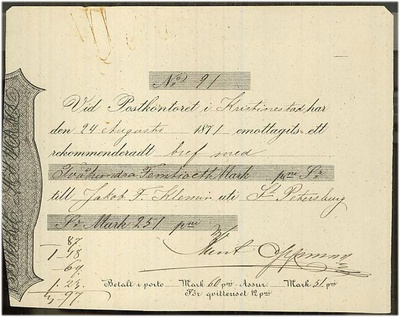 N:o 91
Vid Postkontoret i Kristinestad har
den 24 Augusti 1871 emottagits ett
rekommenderadt bref med
Tvåhundra Femtioett Mark pm Sr
till Jakob F. uti St Petersburg
Sr Mark 251 pm
87
1 18
64
1. 23.
97
Betalt i porto Mark 60 pm Assur. Mark 51 pm
För qvittenset 12 pm